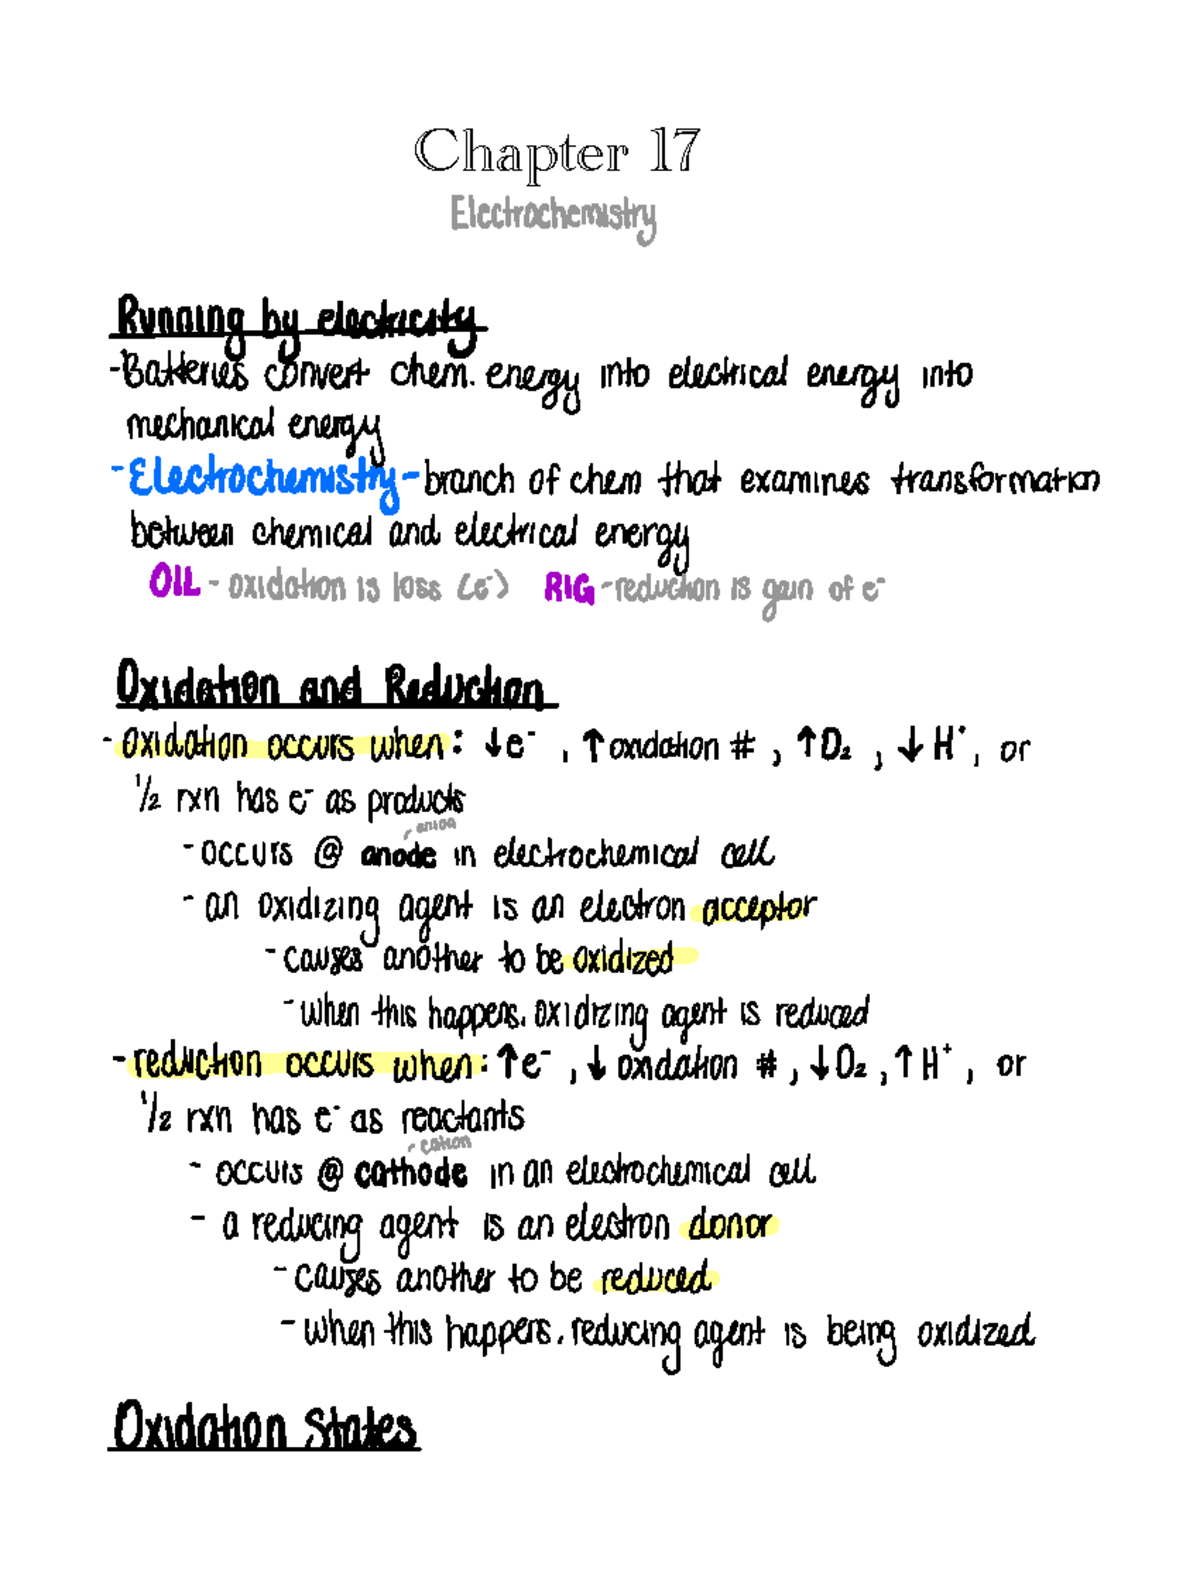 Chapter 17
Electrochemistry
Running by electricity
-Batteries convert chem. energy into electrical energy into
mechanical energy
-Electrochemistry-branch of chem that examines transformation
between chemical and electrical energy
OIL - oxidation is loss (e⁻) RIG -reduction is gain of e⁻
Oxidation and Reduction
- oxidation occurs when: ↓e⁻ , ↑oxidation # , ↑O₂ , ↓ H⁺, or
½ rxn has e⁻ as products
anion
- occurs @ anode in electrochemical cell
- an oxidizing agent is an electron acceptor
- causes another to be oxidized
- when this happens, oxidizing agent is reduced
- reduction occurs when: ↑e⁻ , ↓ oxidation # , ↓O₂ , ↑ H⁺ , or
½ rxn has e⁻ as reactants
cation
- occurs @ cathode in an electrochemical cell
- a reducing agent is an electron donor
- causes another to be reduced
- when this happens, reducing agent is being oxidized
Oxidation States